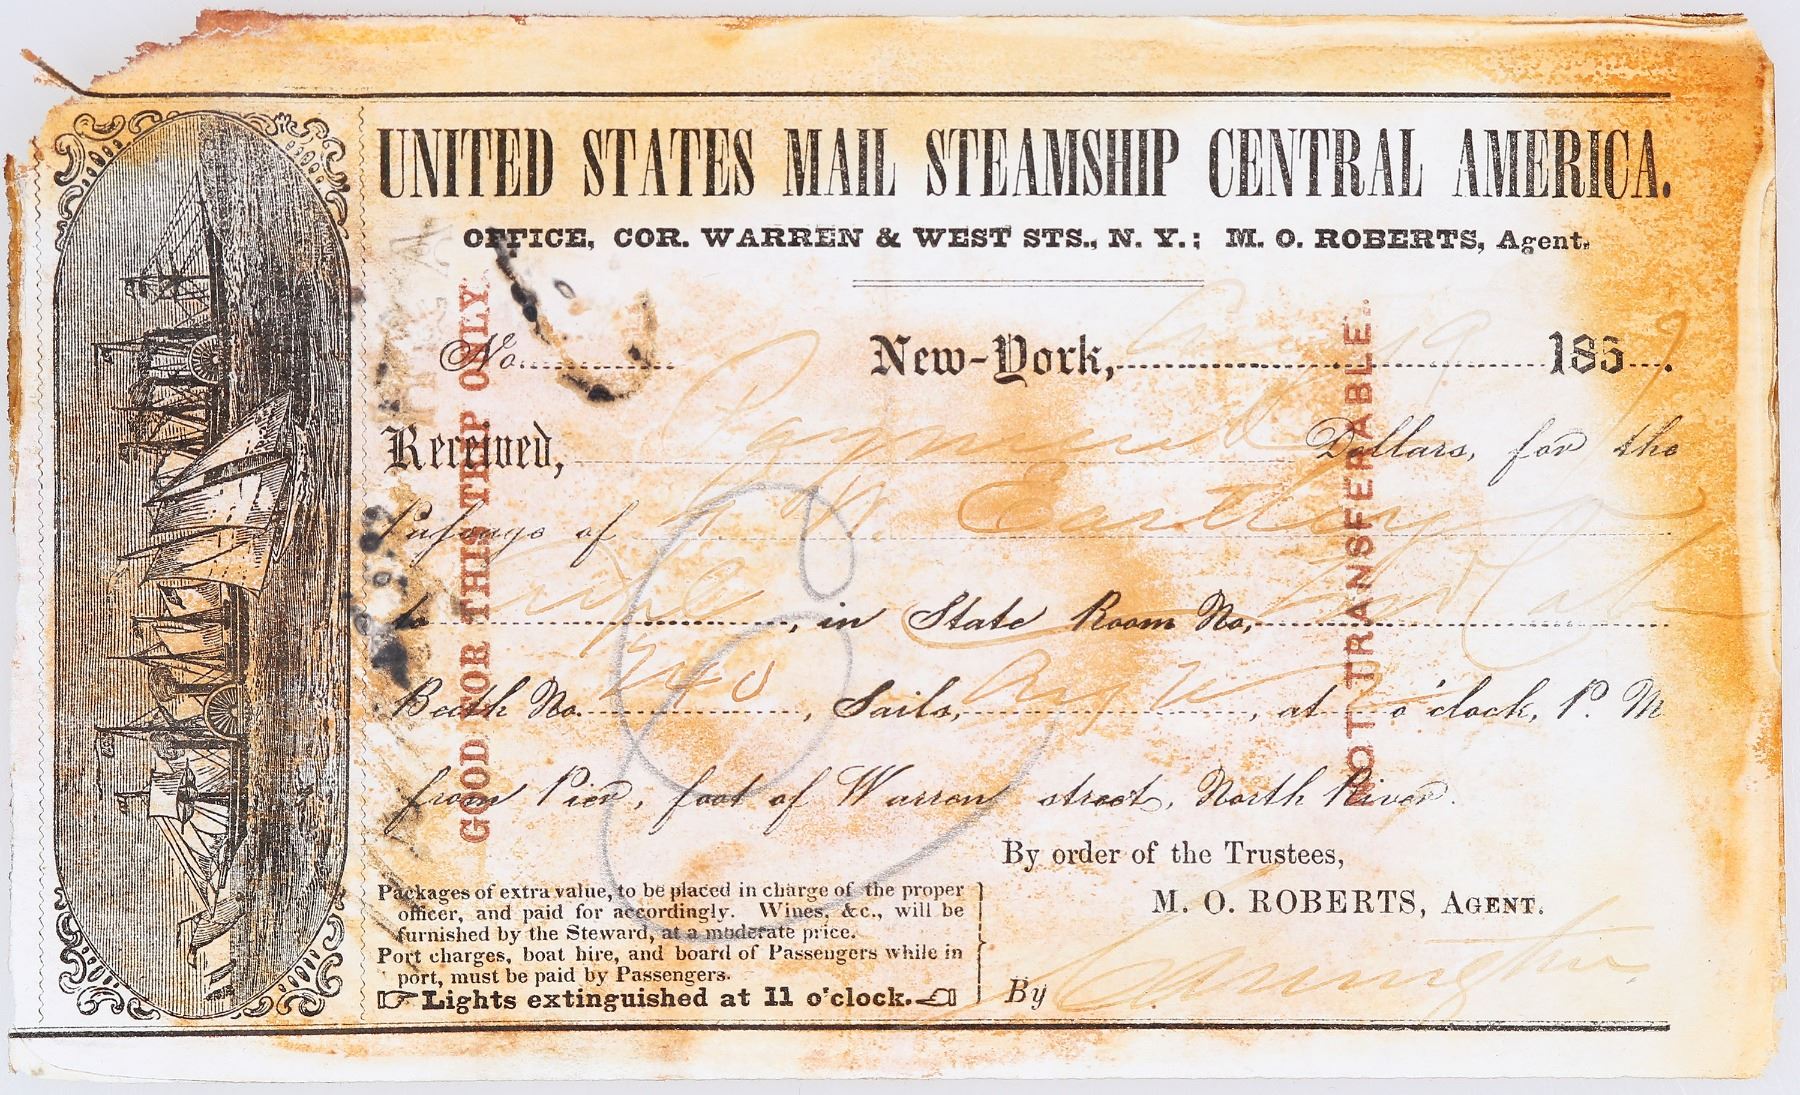 UNITED STATES MAIL STEAMSHIP CENTRAL AMERICA.
OFFICE, COR. WARREN & WEST STS., N. Y.; M. O. ROBERTS, Agent.
No. New-York, 19 1857.
Received, Payment Dollars, for the
Passage of Easton
to, in State Room No,
Berth No. 240, Sails, at o'clock, P. M
from Pier, foot of Warren street, North River.
By order of the Trustees,
M. O. ROBERTS, AGENT.
By
Packages of extra value, to be placed in charge of the proper
officer, and paid for accordingly. Wines, &c., will be
furnished by the Steward, at a moderate price.
Port charges, boat hire, and board of Passengers while in
port, must be paid by Passengers.
Lights extinguished at 11 o'clock.
GOOD FOR THIS TRIP ONLY.
NOT TRANSFERABLE.